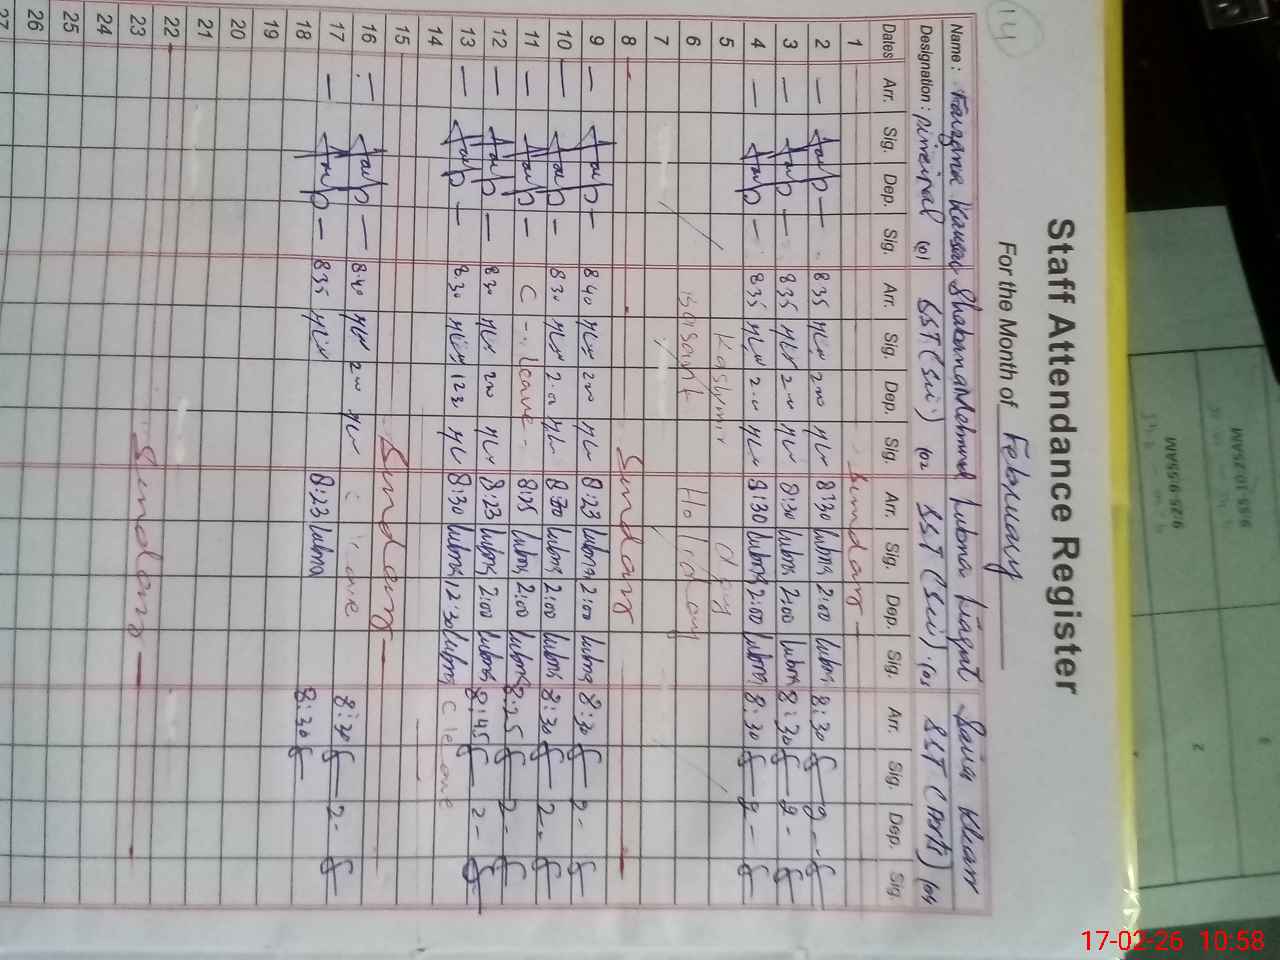 14
Staff Attendance Register
For the Month of February
Name: Kausar Shabana Mehmud Lubna Liaqat Sonia Khan
Designation: principal (01 SST (Sci) (02 SST (Sci) (03 SST (Arts) (04
Dates Arr. Sig. Dep. Sig. Arr. Sig. Dep. Sig. Arr. Sig. Dep. Sig. Arr. Sig. Dep. Sig.
1 Sunday
2 — — 835 200 8:30 Lubna 2:00 Lubna 8:30 2-
3 — — 835 200 8:30 Lubna 2:00 Lubna 8:30 2-
4 — — 835 200 8:30 Lubna 2:00 Lubna 8:30 2-
5 Kashmir day
6 Basant Holiday
7
8 Sunday
9 — — 840 200 8:23 Lubna 2:00 Lubna 8:30 2-
10 — — 830 200 8:30 Lubna 2:00 Lubna 8:30 2-
11 — — C - leave - 8:25 Lubna 2:00 Lubna 8:25 2-
12 — — 830 200 8:23 Lubna 2:00 Lubna 8:45 2-
13 — — 830 8:30 Lubna 12:30 Lubna C leave
14
15 Sunday
16 — — 840 200 C leave 8:30 2-
17 — — 835 8:23 Lubna 8:30
18
19
20
21
22 Sunday
23
24
25
26
27
17-02-26 10:58